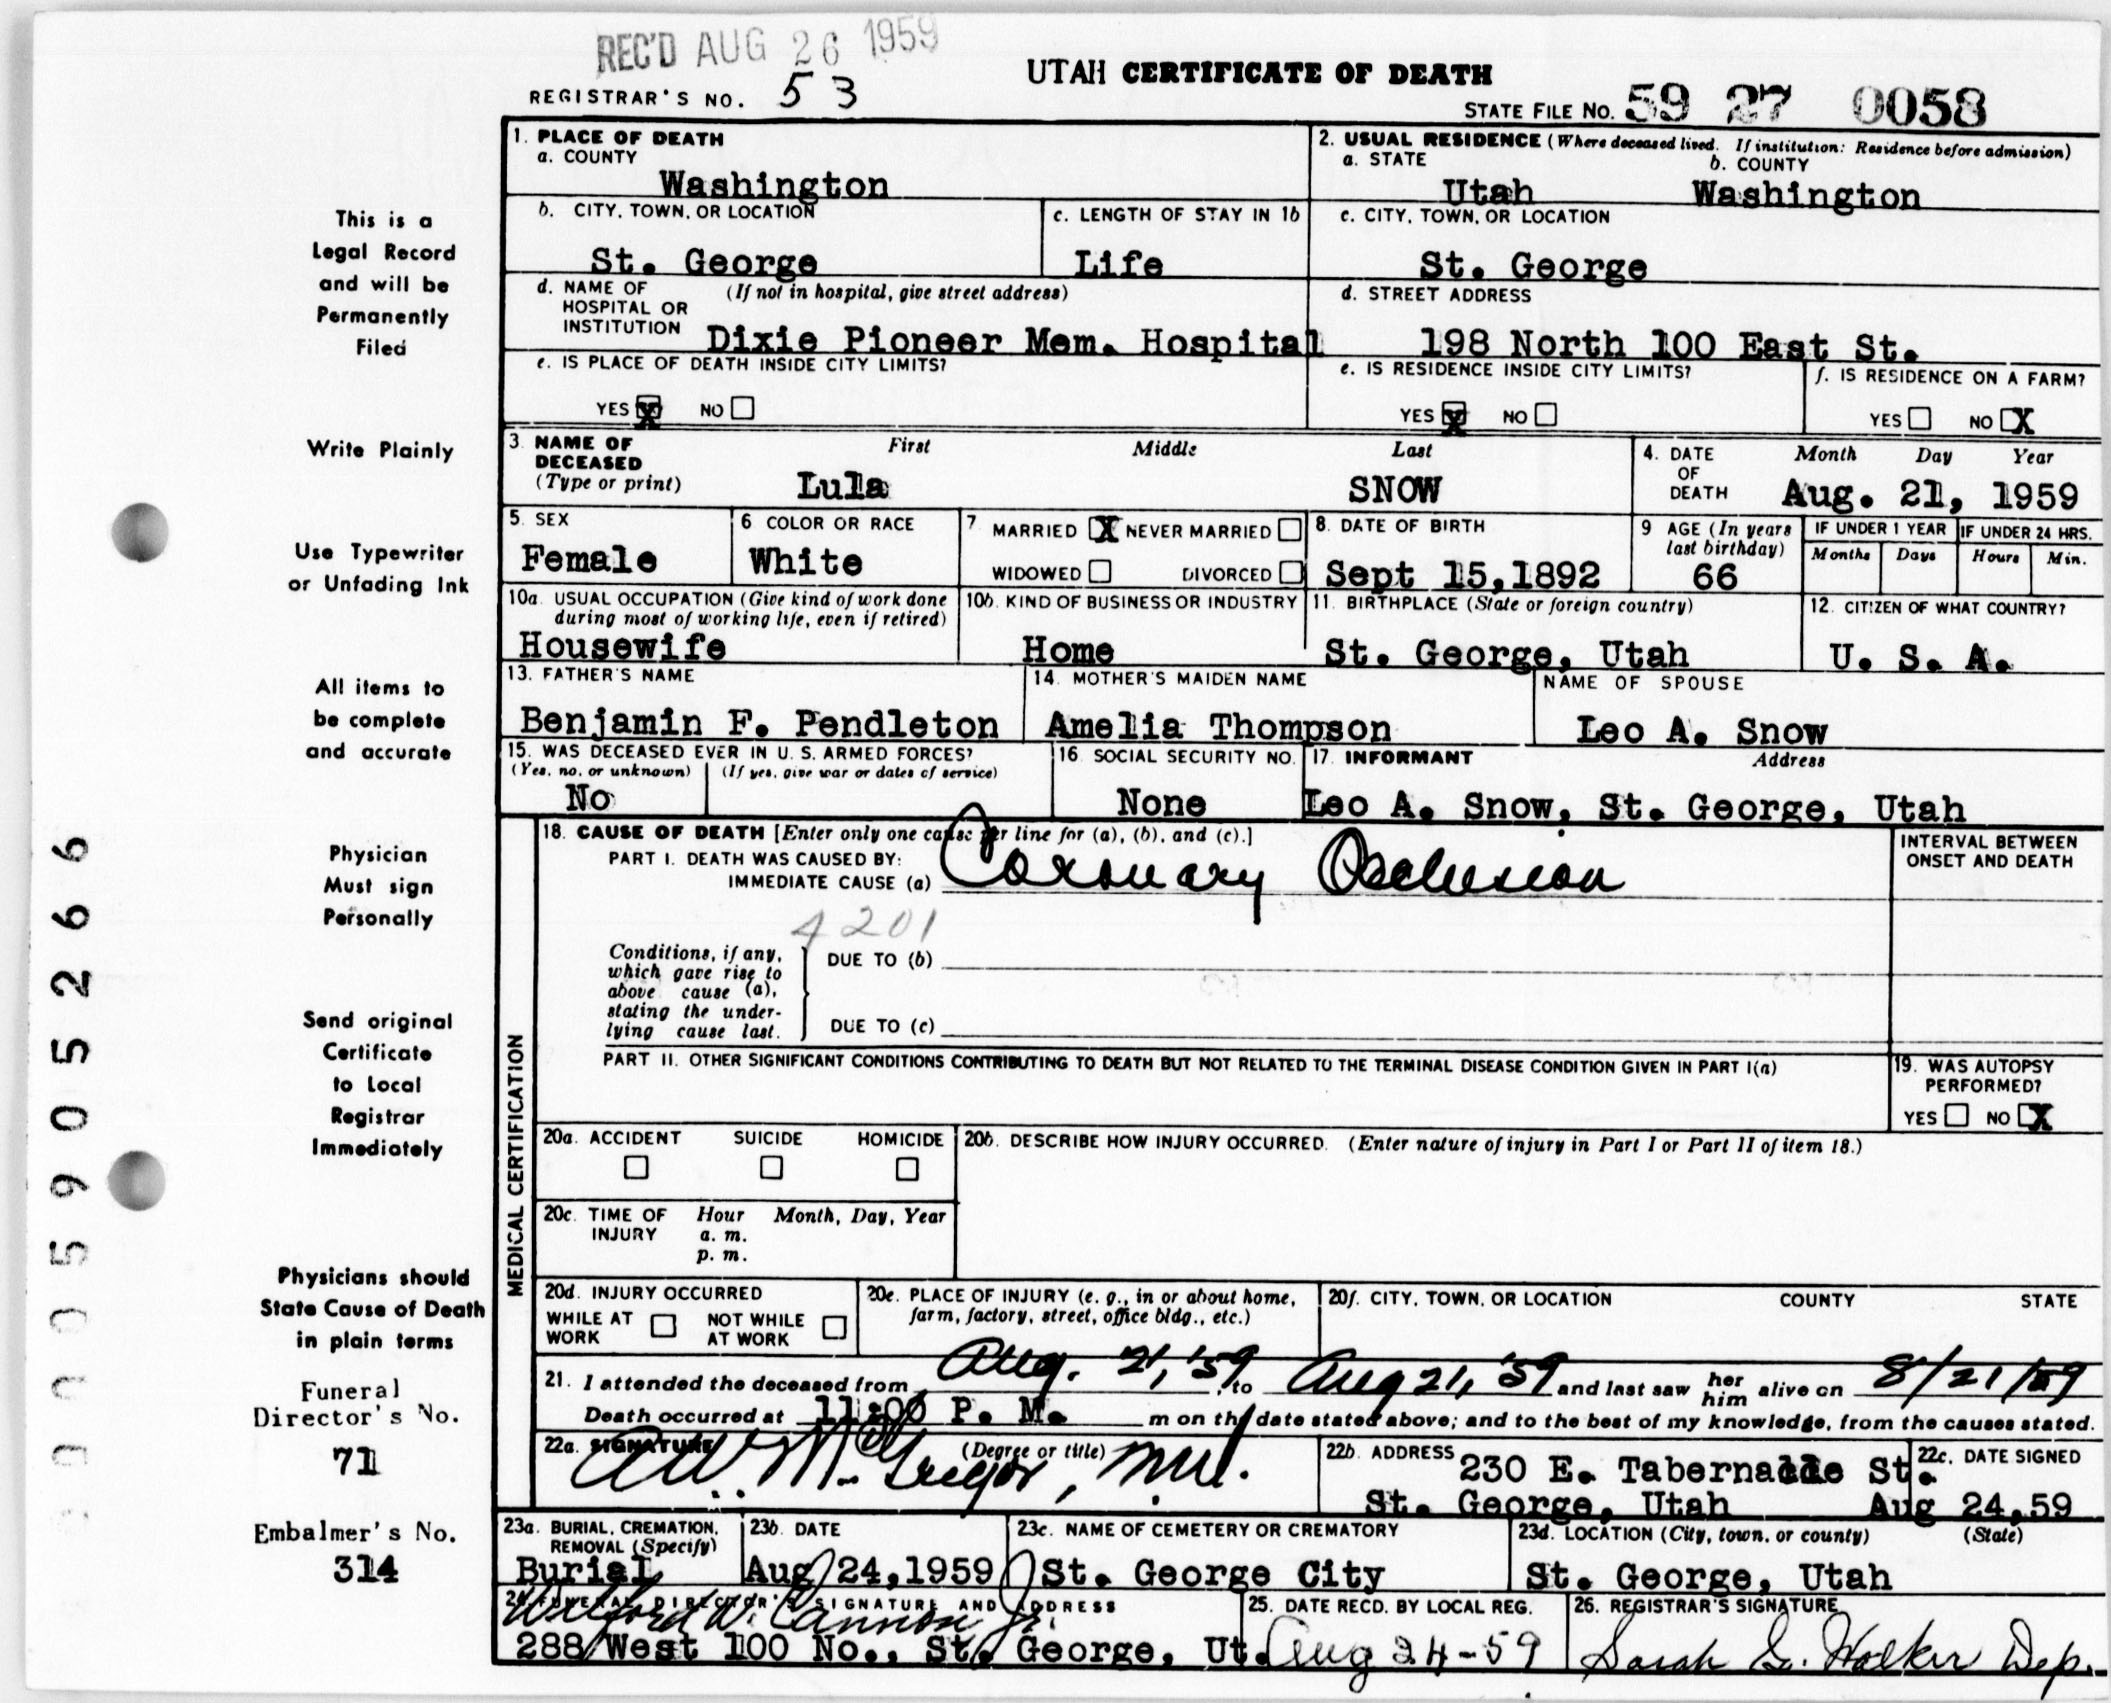 REC'D AUG 26 1959
UTAH CERTIFICATE OF DEATH
REGISTRAR'S NO. 53
STATE FILE NO. 59 27 0058
1. PLACE OF DEATH
a. COUNTY
Washington
2. USUAL RESIDENCE (Where deceased lived. If institution: Residence before admission)
a. STATE b. COUNTY
Utah Washington
b. CITY, TOWN, OR LOCATION
St. George
c. LENGTH OF STAY IN 1b
Life
c. CITY, TOWN, OR LOCATION
St. George
d. NAME OF HOSPITAL OR INSTITUTION (If not in hospital, give street address)
Dixie Pioneer Mem. Hospital
d. STREET ADDRESS
198 North 100 East St.
e. IS PLACE OF DEATH INSIDE CITY LIMITS?
YES X NO
e. IS RESIDENCE INSIDE CITY LIMITS?
YES X NO
f. IS RESIDENCE ON A FARM?
YES NO X
3. NAME OF DECEASED (Type or print)
First Middle Last
Lula SNOW
4. DATE OF DEATH
Month Day Year
Aug. 21, 1959
5. SEX
Female
6 COLOR OR RACE
White
7 MARRIED X NEVER MARRIED
WIDOWED DIVORCED
8. DATE OF BIRTH
Sept 15,1892
9 AGE (In years last birthday)
66
IF UNDER 1 YEAR
Months Days
IF UNDER 24 HRS.
Hours Min.
10a. USUAL OCCUPATION (Give kind of work done during most of working life, even if retired)
Housewife
10b. KIND OF BUSINESS OR INDUSTRY
Home
11. BIRTHPLACE (State or foreign country)
St. George, Utah
12. CITIZEN OF WHAT COUNTRY?
U. S. A.
13. FATHER'S NAME
Benjamin F. Pendleton
14. MOTHER'S MAIDEN NAME
Amelia Thompson
NAME OF SPOUSE
Leo A. Snow
15. WAS DECEASED EVER IN U. S. ARMED FORCES?
(Yes, no, or unknown) (If yes, give war or dates of service)
No
16. SOCIAL SECURITY NO.
None
17. INFORMANT Address
Leo A. Snow, St. George, Utah
MEDICAL CERTIFICATION
18. CAUSE OF DEATH [Enter only one cause per line for (a), (b), and (c).]
PART I. DEATH WAS CAUSED BY:
IMMEDIATE CAUSE (a) Coronary Occlusion
4201
INTERVAL BETWEEN ONSET AND DEATH
Conditions, if any, which gave rise to above cause (a), stating the underlying cause last.
DUE TO (b)
DUE TO (c)
PART II. OTHER SIGNIFICANT CONDITIONS CONTRIBUTING TO DEATH BUT NOT RELATED TO THE TERMINAL DISEASE CONDITION GIVEN IN PART I(a)
19. WAS AUTOPSY PERFORMED?
YES NO X
20a. ACCIDENT SUICIDE HOMICIDE
20b. DESCRIBE HOW INJURY OCCURRED. (Enter nature of injury in Part I or Part II of item 18.)
20c. TIME OF INJURY Hour Month, Day, Year
a. m.
p. m.
20d. INJURY OCCURRED
WHILE AT WORK NOT WHILE AT WORK
20e. PLACE OF INJURY (e. g., in or about home, farm, factory, street, office bldg., etc.)
20f. CITY, TOWN, OR LOCATION COUNTY STATE
21. I attended the deceased from Aug. 21, '59, to Aug 21, '59 and last saw her him alive on 8/21/59
Death occurred at 11:00 P. M. m on the date stated above; and to the best of my knowledge, from the causes stated.
22a. SIGNATURE (Degree or title)
A W McGregor, M.D.
22b. ADDRESS
230 E. Tabernacle St.
St. George, Utah
22c. DATE SIGNED
Aug 24,59
23a. BURIAL, CREMATION, REMOVAL (Specify)
Burial
23b. DATE
Aug 24,1959
23c. NAME OF CEMETERY OR CREMATORY
St. George City
23d. LOCATION (City, town, or county) (State)
St. George, Utah
24. FUNERAL DIRECTOR'S SIGNATURE AND ADDRESS
Wilford W. Cannon Jr.
288 West 100 No., St. George, Ut.
25. DATE RECD. BY LOCAL REG.
Aug 24-59
26. REGISTRAR'S SIGNATURE
Sarah G. Walker Dep.
This is a
Legal Record
and will be
Permanently
Filed
Write Plainly
Use Typewriter
or Unfading Ink
All items to
be complete
and accurate
Physician
Must sign
Personally
Send original
Certificate
to Local
Registrar
Immediately
Physicians should
State Cause of Death
in plain terms
Funeral
Director's No.
71
Embalmer's No.
314